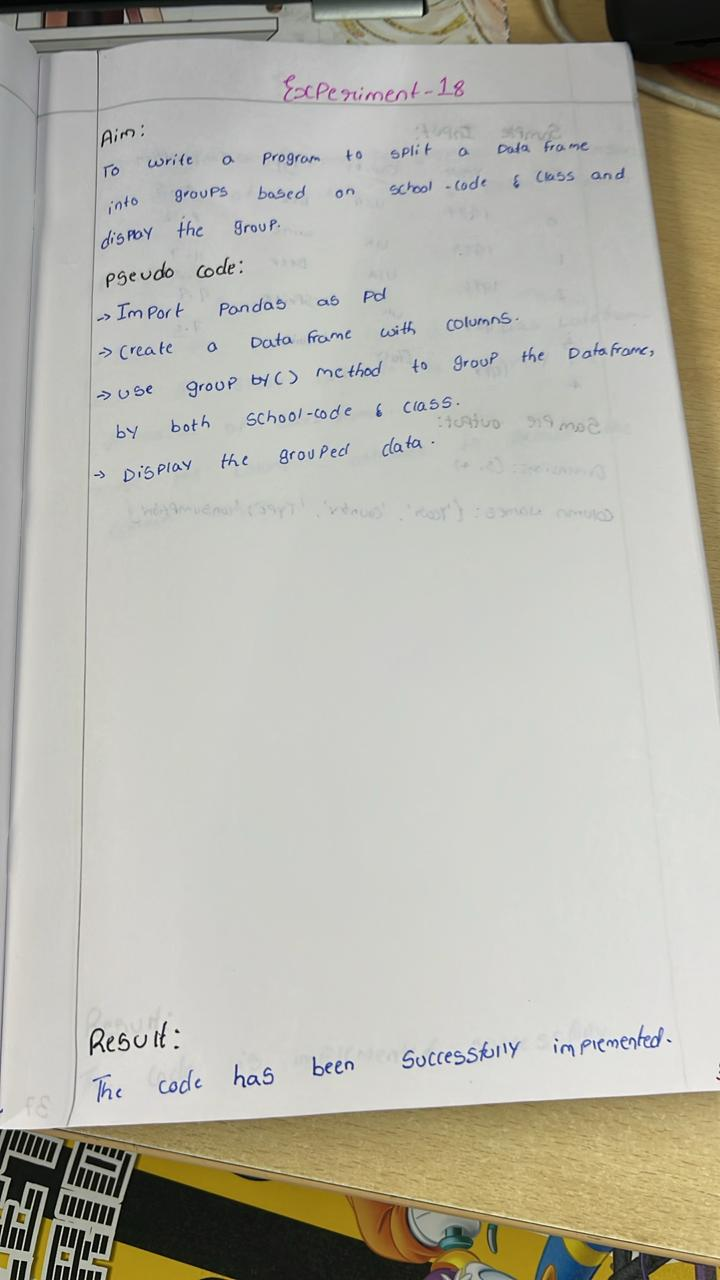 Experiment-18
Aim:
To write a program to split a Data frame
into groups based on school-code & class and
display the group.
Pseudo code:
→ Import Pandas as Pd
→ Create a Data frame with columns.
→ use group by() method to group the Dataframe,
by both school-code & class.
→ Display the grouped data.
Result:
The code has been Successfully implemented.